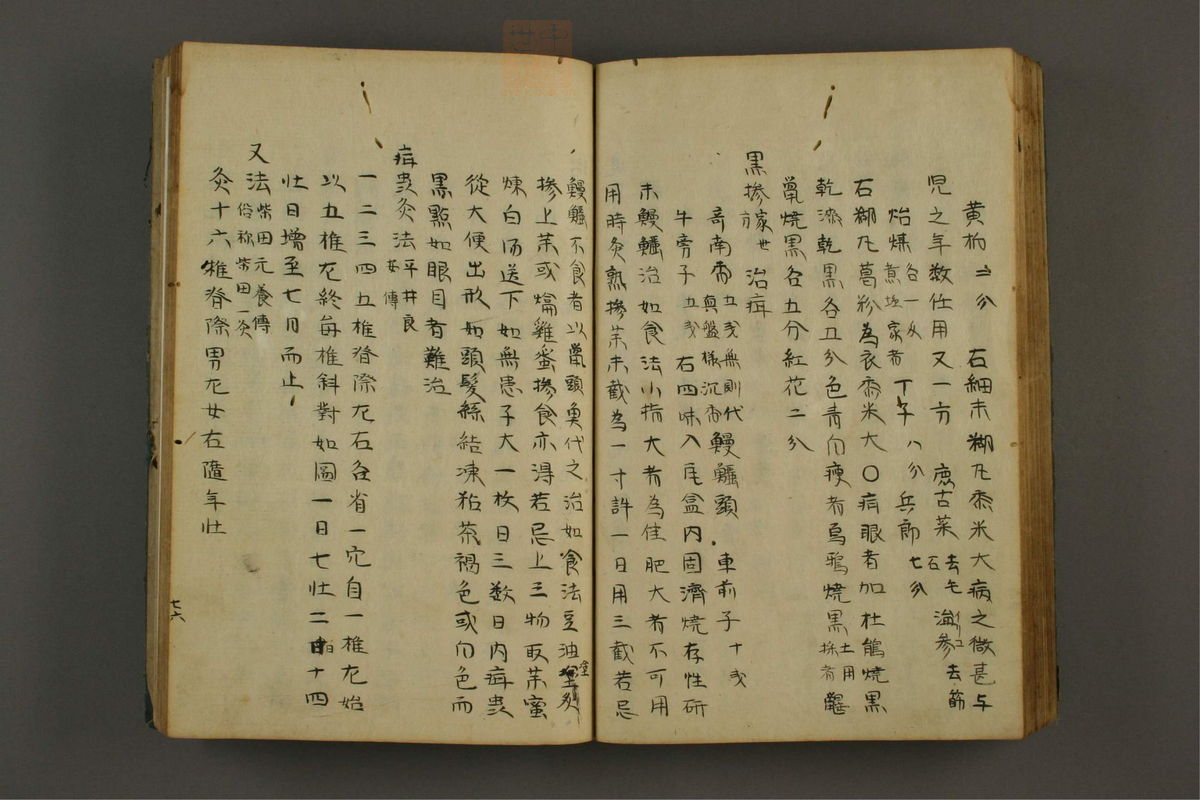 黄栁 二分 石細末糊丸黍米大病之微甚与
児之年数任用又一方 鹿古菜 去毛石 海参 去筋
各一匁 丁子 八分 兵郎 七分
石糊丸葛粉為衣黍米大〇疳眼者加杜鵑燒黒
乾漆乾黒各五分色青白瘦者烏鴉燒黒 土用採者 鼴
鼠燒黒各五分紅花二分
黒摻 家世 治疳
奇南香 五戔無則代真盤様沉香 鰻鱺頭 車前子 十戔
牛旁子 五戔 右四味入瓦盒内固濟燒存性研
末鰻鱺治如食法小指大者為佳肥大者不可用
用時灸熟摻茉末截為一寸許一日用三截若忌
鰻鱺不食者以 頭奠代之治如食法豆油塗炙
摻上茉或 雞蛋摻食亦得若忌上三物取茉蜜
煉白汤送下如無患子大一枚日三数日内疳虫
從大便出形如頭髮絲結凍粘茶褐色或白色而
黒點如眼目者難治
疳虫灸法 平井良安傳
一二三四五椎脊際左右各省一穴自一椎左始
以五椎左終每椎斜對如圖一日七壮二十四
壮日增至七月而止
又法 柴田元養傳俗称柴田一灸
灸十六椎脊際男左女右隨年壮
七六